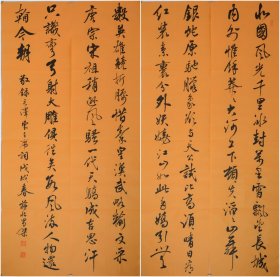 北國風光千里冰封萬里雪飄望長城
内外惟餘莽莽大河上下頓失滔滔山舞
銀蛇原馳臘象欲与天公試比高須晴日看
紅裝素裹分外妖嬈江山如此多嬌引無
數英雄競折腰惜秦皇漢武略輸文采
唐宗宋祖稍遜風騷一代天驕成吉思汗
只識彎弓射大雕俱往矣數風流人物還
看今朝 敬錄毛澤東主席詞戊戌春